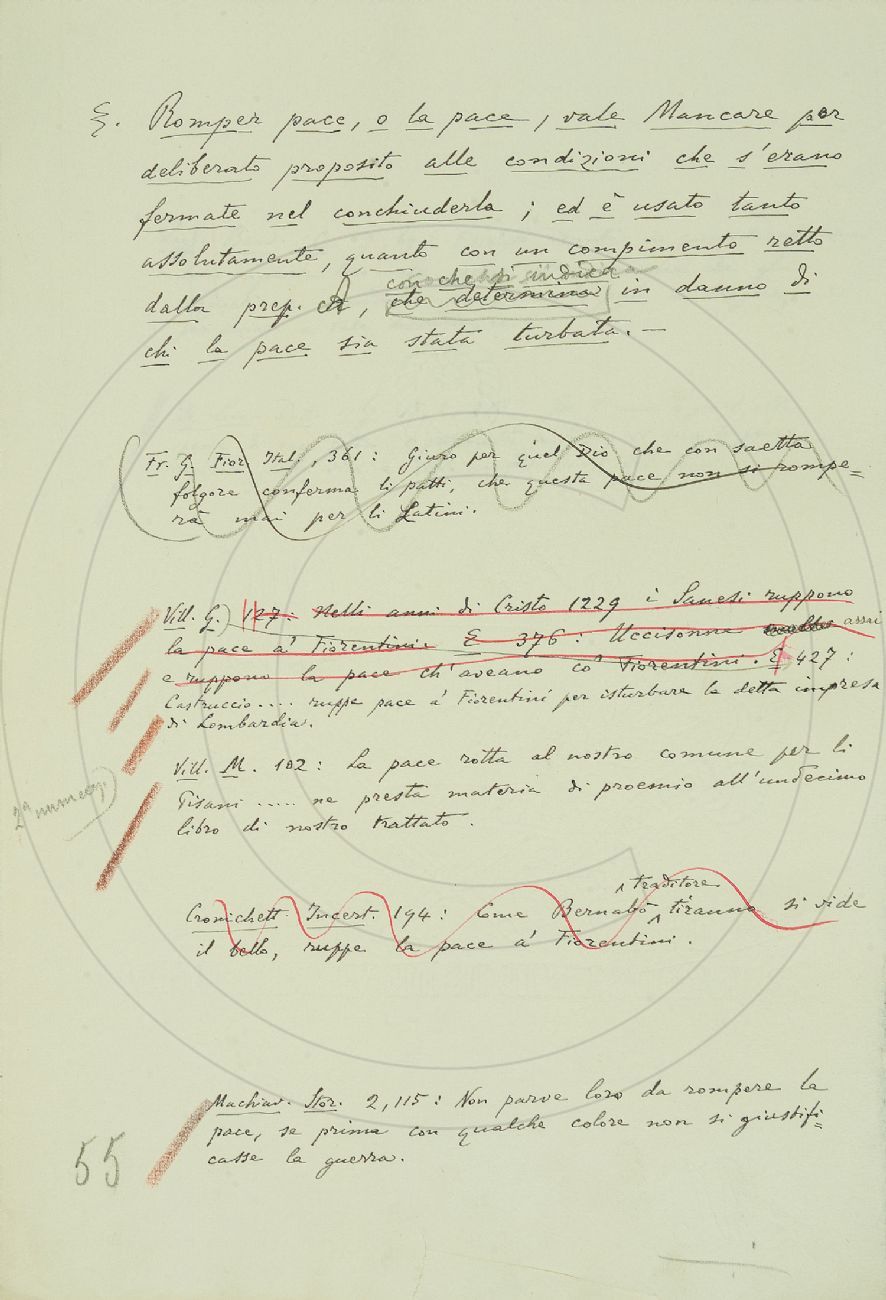 ξ. Romper pace, o la pace, vale Mancare per
deliberato proposito alle condizioni che s'erano
fermate nel conchiuderla; ed è usato tanto
assolutamente, quanto con un compimento retto
con che si indica
dalla prep. a, che determina in danno di
chi la pace sia stata turbata.—
Fr. G. Fior. Ital., 361: Giuro per quel Dio che con saetta
folgore conferma li patti, che questa pace non si rompe=
rà mai per li Latini.
Vill. G. 127: Nelli anni di Cristo 1229 i Sanesi ruppono
la pace a' Fiorentini. E 376: Uccisonne assai
e ruppono la pace ch'aveano co' Fiorentini. E 427:
Castruccio .... ruppe pace a' Fiorentini per isturbare la detta impresa
di Lombardia.
Vill. M. 102: La pace rotta al nostro comune per li
Pisani ..... ne presta materia di proemio all'undecimo
libro di nostro trattato.
traditore
Cronichett. Incert. 194: Come Bernabò tiranno si vide
il bello, ruppe la pace a' Fiorentini.
Machiav. Stor. 2,115: Non parve loro da rompere la
pace, se prima con qualche colore non si giustifi=
casse la guerra.
55